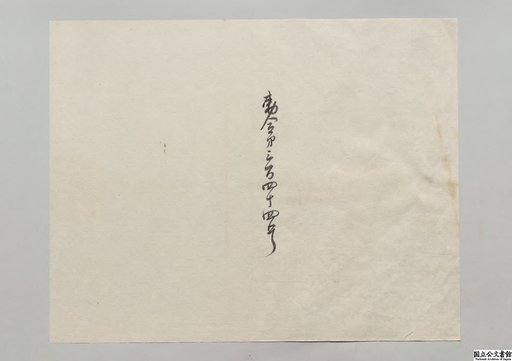 勅令第三百四十四号
国立公文書館
National Archives of Japan